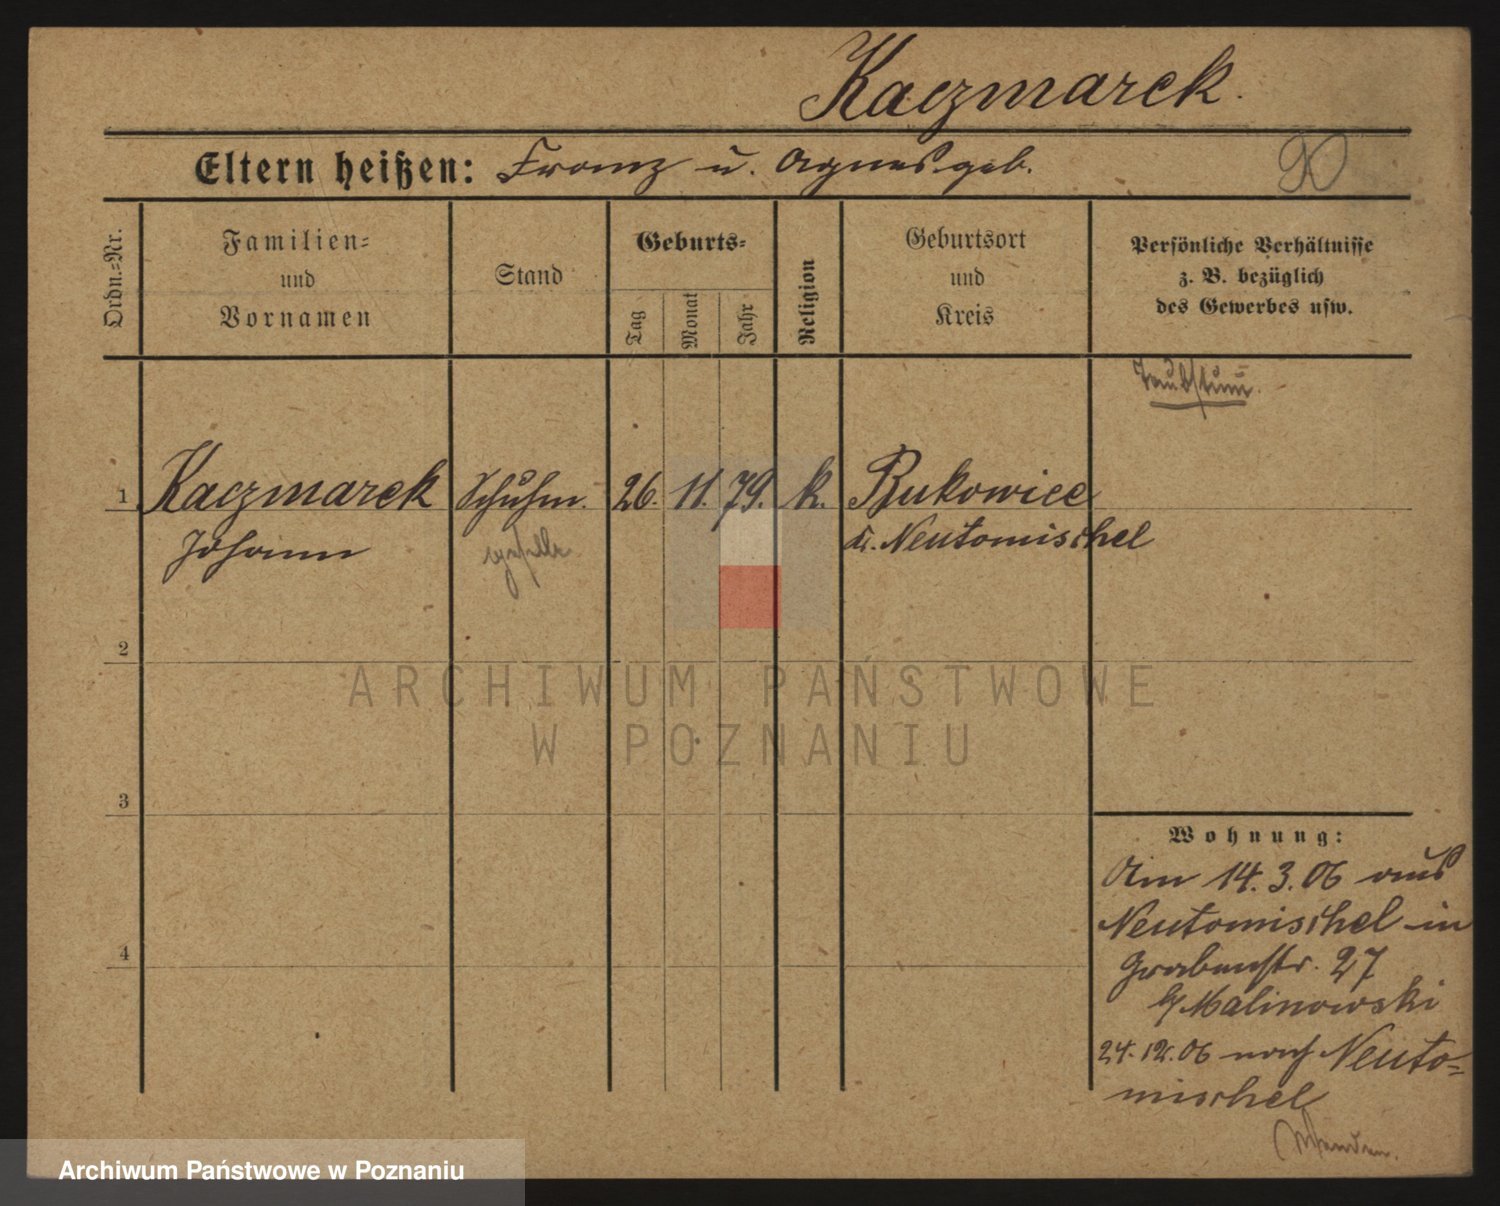 Kaczmarek.
Eltern heißen: Franz u. Agnes geb.
90
Ordn.=Nr.
Familien=
und
Vornamen
Stand
Geburts=
Tag
Monat
Jahr
Religion
Geburtsort
und
Kreis
Persönliche Verhältnisse
z. B. bezüglich
des Gewerbes usw.
Taubstumm.
1 Kaczmarek Schuhm. 26. 11. 79. k. Bukowiec
Johann geselle Kr. Neutomischel
2
ARCHIWUM PAŃSTWOWE
W POZNANIU
3
Wohnung:
Am 14.3.06 aus
Neutomischel in
Grabenstr. 27
b/ Malinowski
4
24.12.06 nach Neuto=
mischel
Archiwum Państwowe w Poznaniu